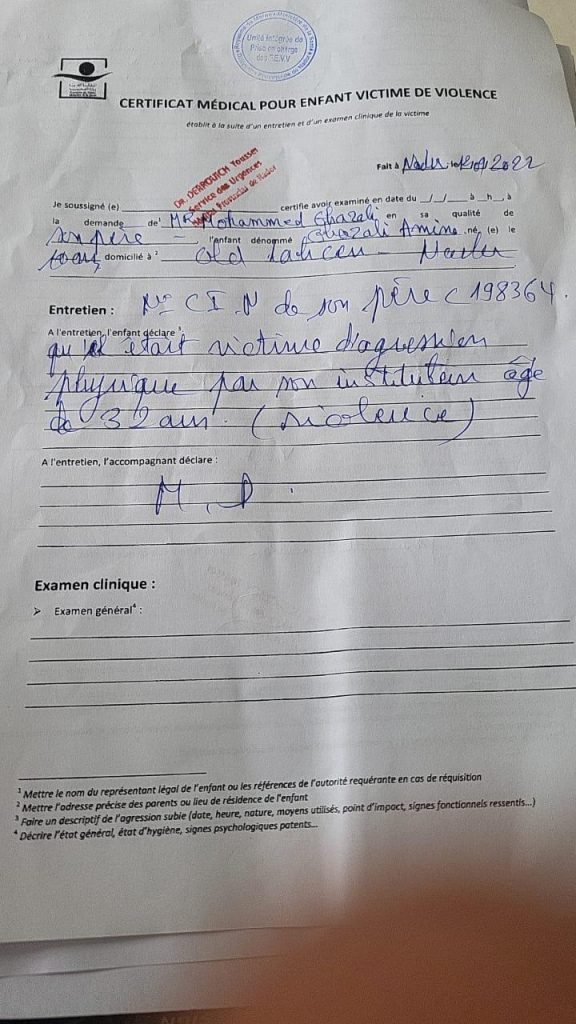 Unité Intégrée de
Prise en charge
des F.E.V.V
CERTIFICAT MÉDICAL POUR ENFANT VICTIME DE VIOLENCE
établit à la suite d'un entretien et d'un examen clinique de la victime
Fait à Nador le
Dr. DERKOUICH Youssef
Service des Urgences
Hôpital Provincial de Nador
Je soussigné (e) certifie avoir examiné en date du __/__/__ à __h__ à
la demande de¹ MR Mohammed Ghazali en sa qualité de
son père , l'enfant dénommé Ghazali Amine né, (e) le
domicilié à ² Old Nador
Entretien : N° CIN de son père C 198364.
A l'entretien, l'enfant déclare ³
qu'il était victime d'agression
physique par son instituteur âgé
de 32 ans. (violence)
A l'entretien, l'accompagnant déclare :
Examen clinique :
➢ Examen général⁴ :
¹ Mettre le nom du représentant légal de l'enfant ou les références de l'autorité requérante en cas de réquisition
² Mettre l'adresse précise des parents ou lieu de résidence de l'enfant
³ Faire un descriptif de l'agression subie (date, heure, nature, moyens utilisés, point d'impact, signes fonctionnels ressentis...)
⁴ Décrire l'état général, état d'hygiène, signes psychologiques patents...